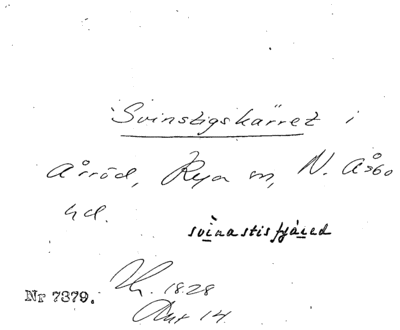 Svinstigskärret i
Årröd, Rya sn, N. Åsbo
hd.
svinastisfjäred
Nr 7379. 1828
14.